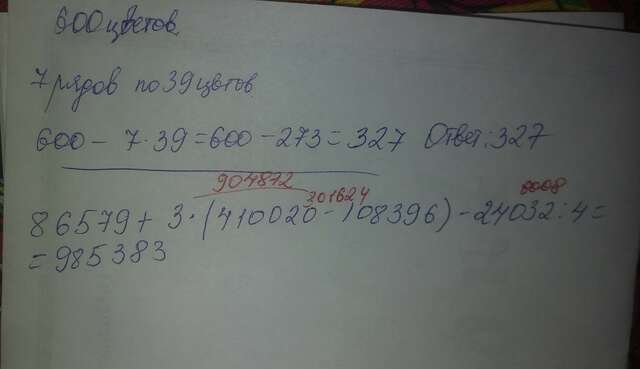 600 цветов.
7 рядов по 39 цветов.
600 - 7·39 = 600 - 273 = 327 Ответ: 327
904872
301624 6008
86579 + 3·(410020 - 108396) - 24032:4 =
= 985383